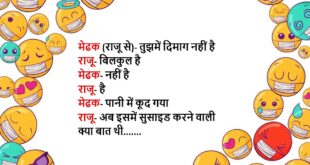 मेढक (राजू से)- तुझमें दिमाग नहीं है
राजू- बिलकुल है
मेढक- नहीं है
राजू- है
मेढक- पानी में कूद गया
राजू- अब इसमें सुसाइड करने वाली
क्या बात थी.......